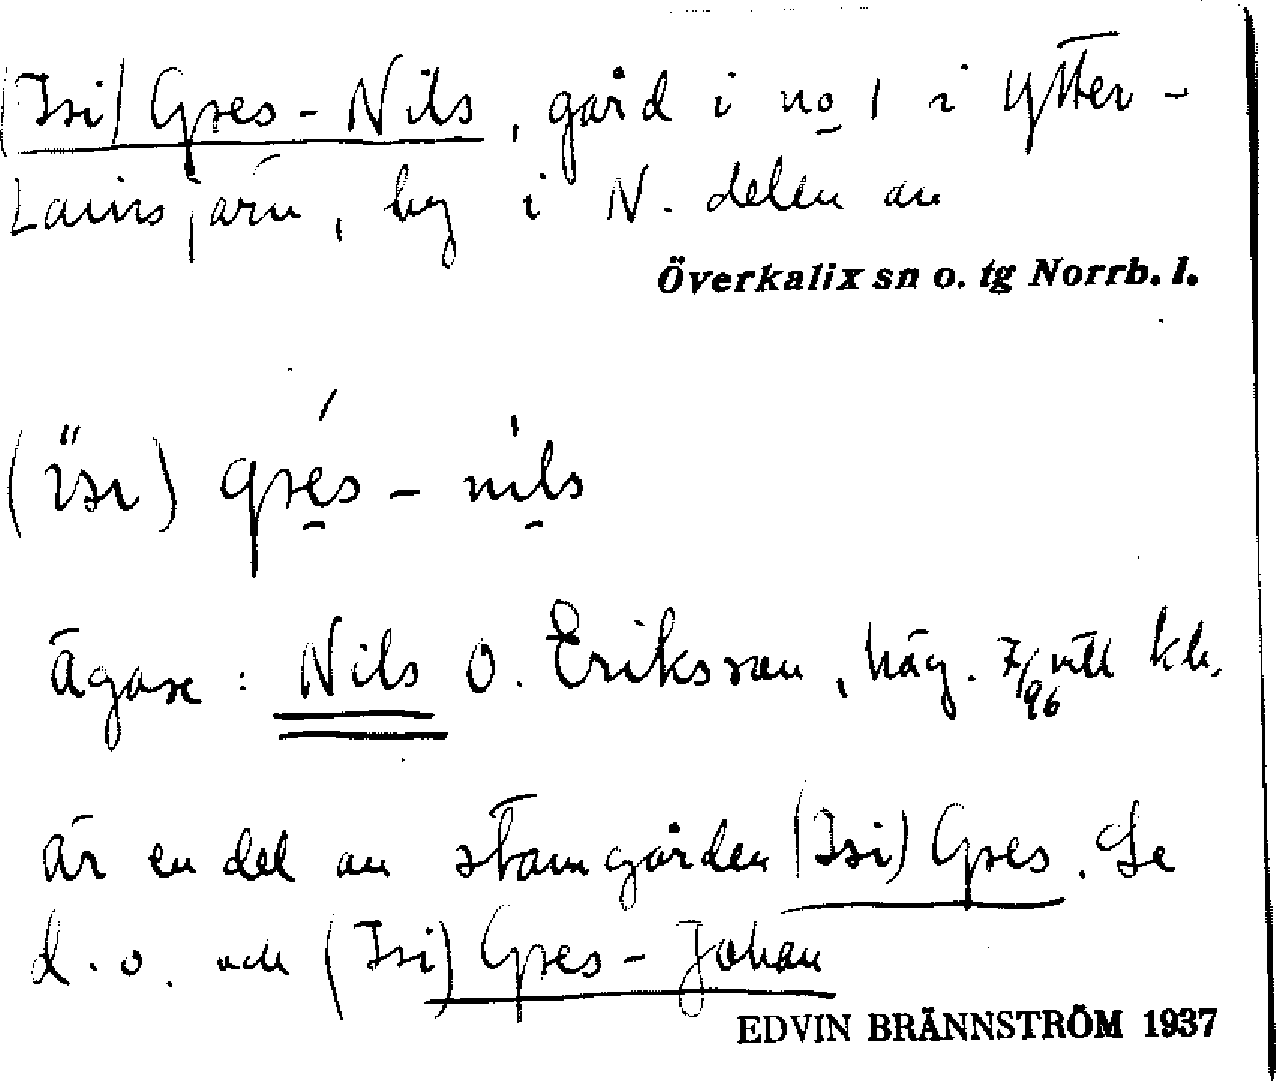 (Isi) Gres-Nils, gård i no 1 i Ytter-
Lansjärv, by i N. delen av
Överkalix sn o. tg Norrb. l.
(ïsi) gres-nils
Ägare: Nils O. Eriksson,
är en del av stamgården (Isi) Gres. Se
d. o. och (Isi) Gres-Johan
EDVIN BRÄNNSTRÖM 1937